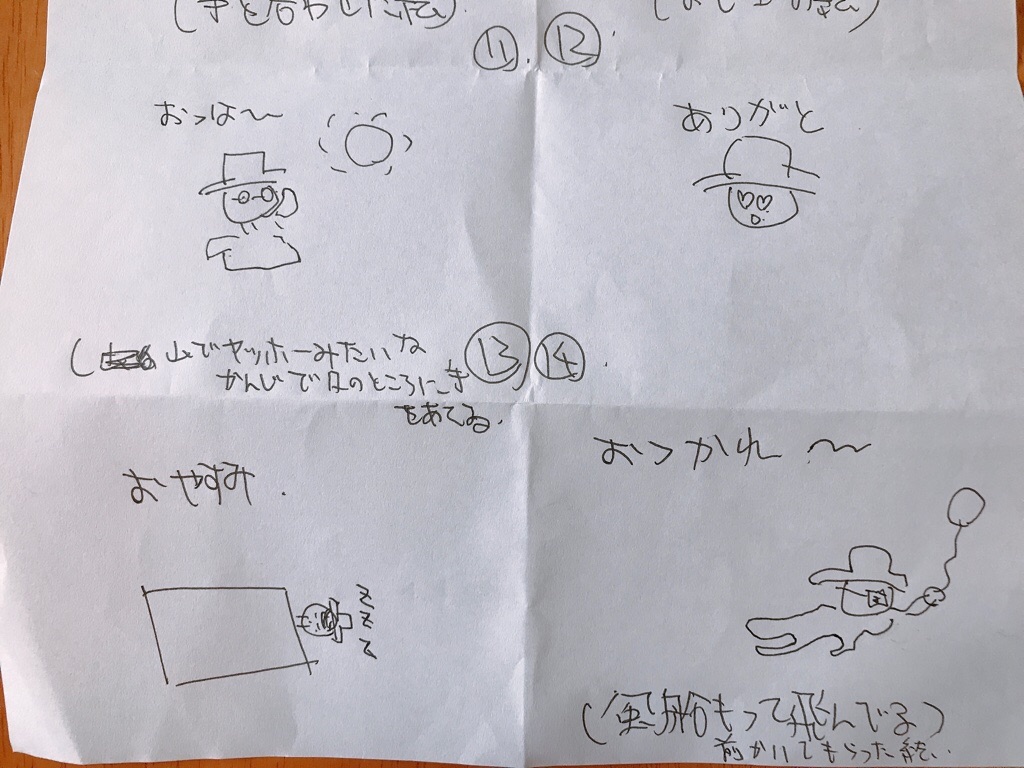 (手を合わせた絵)
(おじぎの絵)
⑪ ⑫
おっは〜
ありがと
(山でヤッホーみたいな
かんじで口のところに手
をあてる.
⑬ ⑭
おやすみ.
おつかれ〜
zzz
(風船もって飛んでる)
前かいてもらった絵..